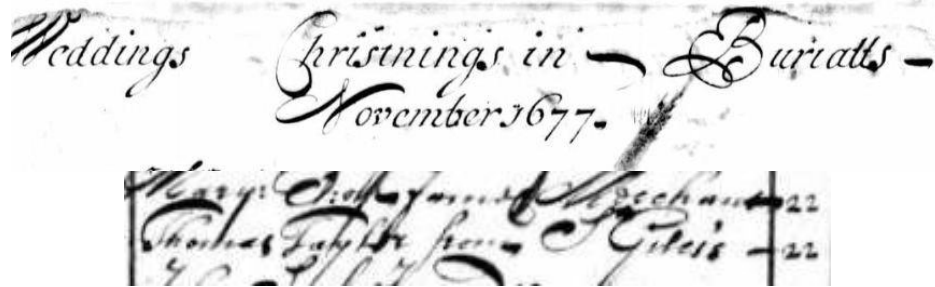 Weddings Christnings in Burialls
November 1677.
Mary 22
Thomas Taylor from St Giles's 22